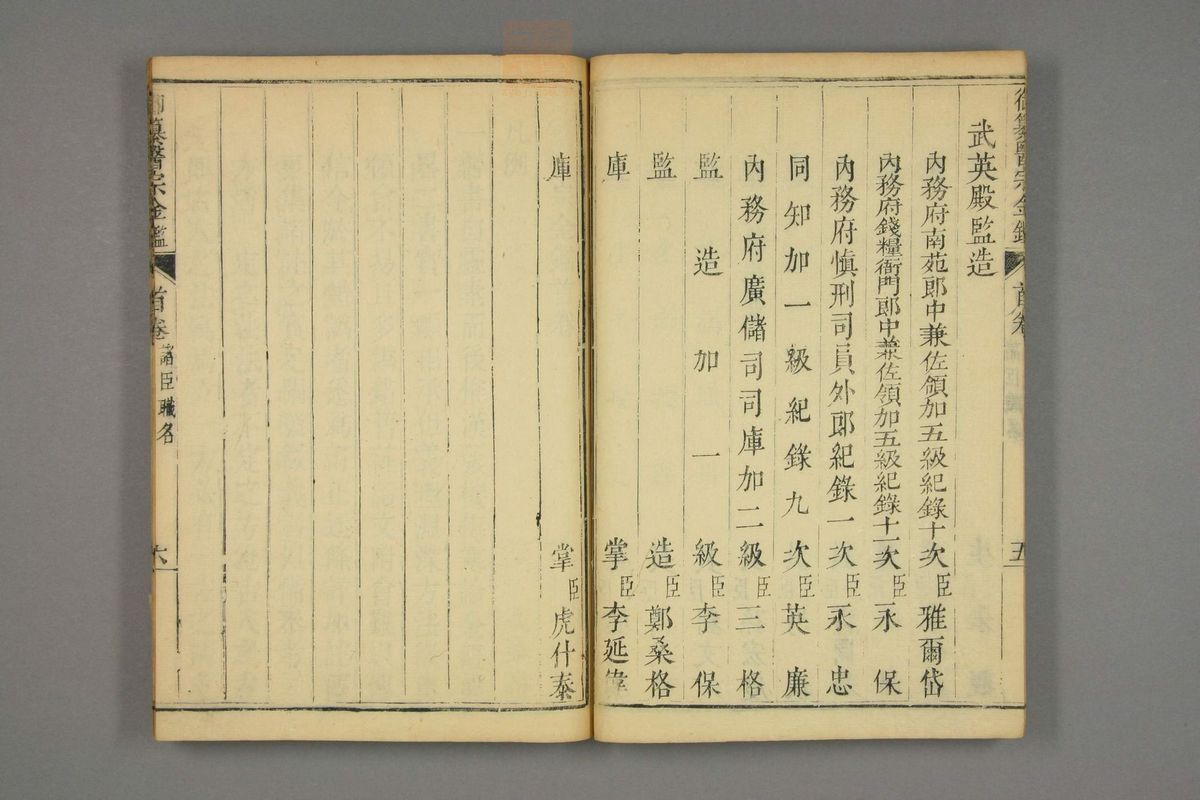 御纂醫宗金鑑
首卷
五
武英殿監造
內務府南苑郎中兼佐領加五級紀錄十次臣雅爾岱
內務府錢糧衙門郎中兼佐領加五級紀錄十一次臣永保
內務府慎刑司員外郎紀錄一次臣永忠
同知加一級紀錄九次臣英廉
內務府廣儲司司庫加二級臣三格
監造加一級臣李保
監造臣鄭桑格
庫掌臣李延偉
庫掌臣虎什泰
御纂醫宗金鑑
首卷
諸臣職名
六